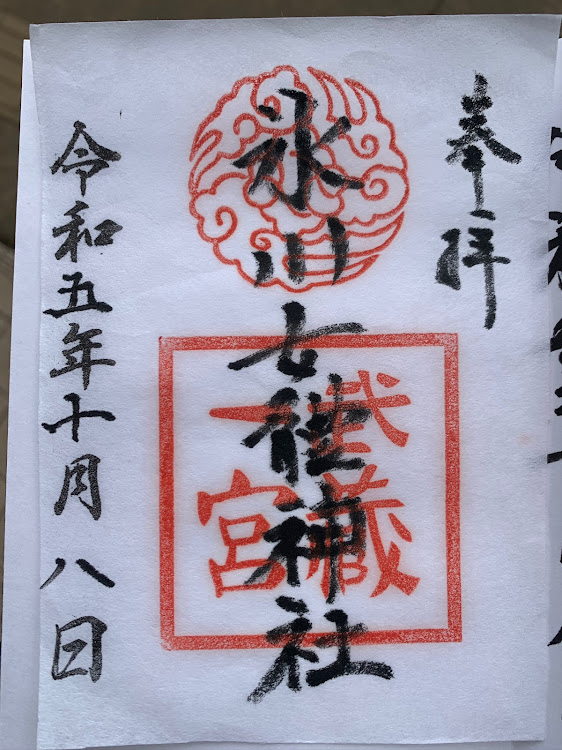 奉拝
氷川女體神社
武蔵
一宮
令和五年十月八日